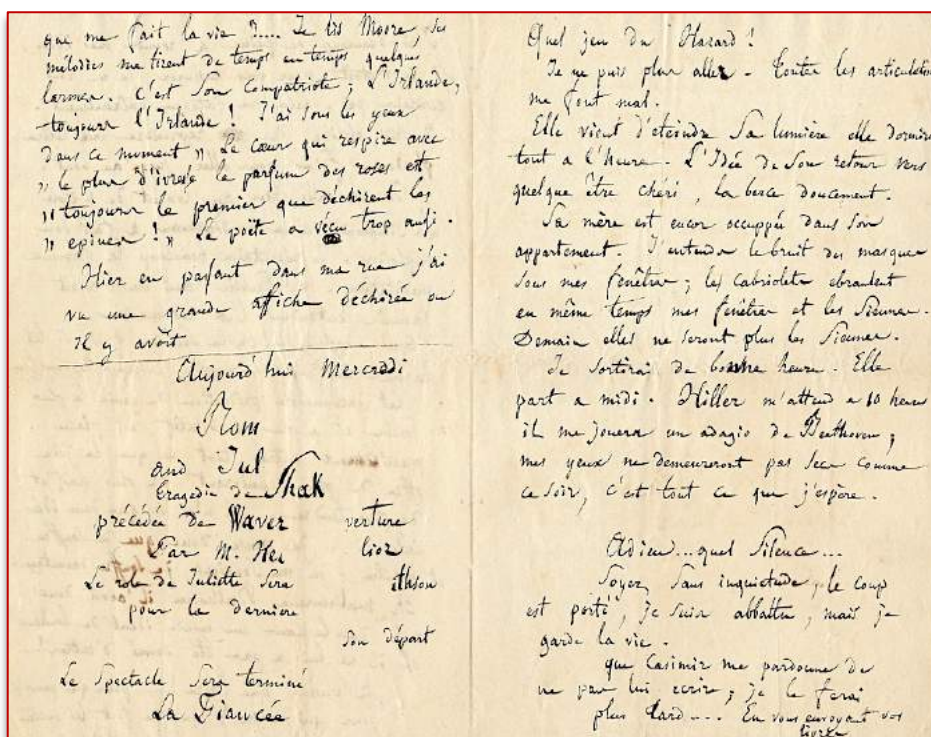 que me fait la vie ?.... Je lis Moore, ses
mélodies me tirent de temps en temps quelques
larmes. C'est son compatriote ; L'Irlande,
toujours l'Irlande ! J'ai sous les yeux
dans ce moment » Le cœur qui respire avec
» le plus d'ivresse le parfum des roses est
» toujours le premier que déchirent les
» epines ! » Le poëte a vécu trop aussi.
Hier en passant dans ma rue j'ai
vu une grande affiche déchirée ou
il y avoit
Aujourd'hui Mercredi
Rom
and Jul
tragedie de Shak
précédée de Waver verture
Par M. Hec lioz
Le role de Juliette sera ithson
pour la derniere
son départ
Le Spectacle sera terminé
La Fiancée
Quel jeu du Hazard !
Je ne puis plus aller - toutes les articulations
me font mal.
Elle vient d'eteindre sa lumière elle dormira
tout a l'heure - L'Idée de son retour vers
quelque être chéri, la berce doucement.
Sa mère est encor occuppée dans son
appartement. J'entends le bruit des masques
sous mes fenêtres ; les cabriolets ebranlent
en même temps mes fenêtres et les siennes.
Demain elles ne seront plus les siennes.
Je sortirai de bonne heure. Elle
part a midi. Hiller m'attend a 10 heures
il me jouera un adagio de Beethoven ;
mes yeux ne demeureront pas secs comme
ce soir, c'est tout ce que j'espère.
Adieu...quel silence...
Soyez sans inquietude, le coup
est porté, je suis abbattu, mais je
garde la vie.
que Casimir me pardonne de
ne pas lui ecrire ; je le ferai
plus tard.... En vous envoyant vos
livres